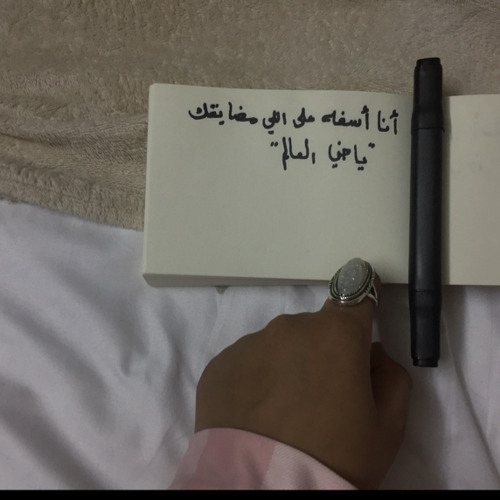 أنا أسفه على اللي مضايقك
"ياحني العالم"